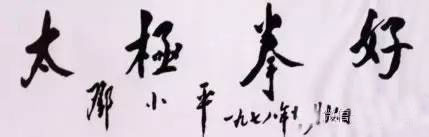 太極拳好
鄧小平 一九七八年